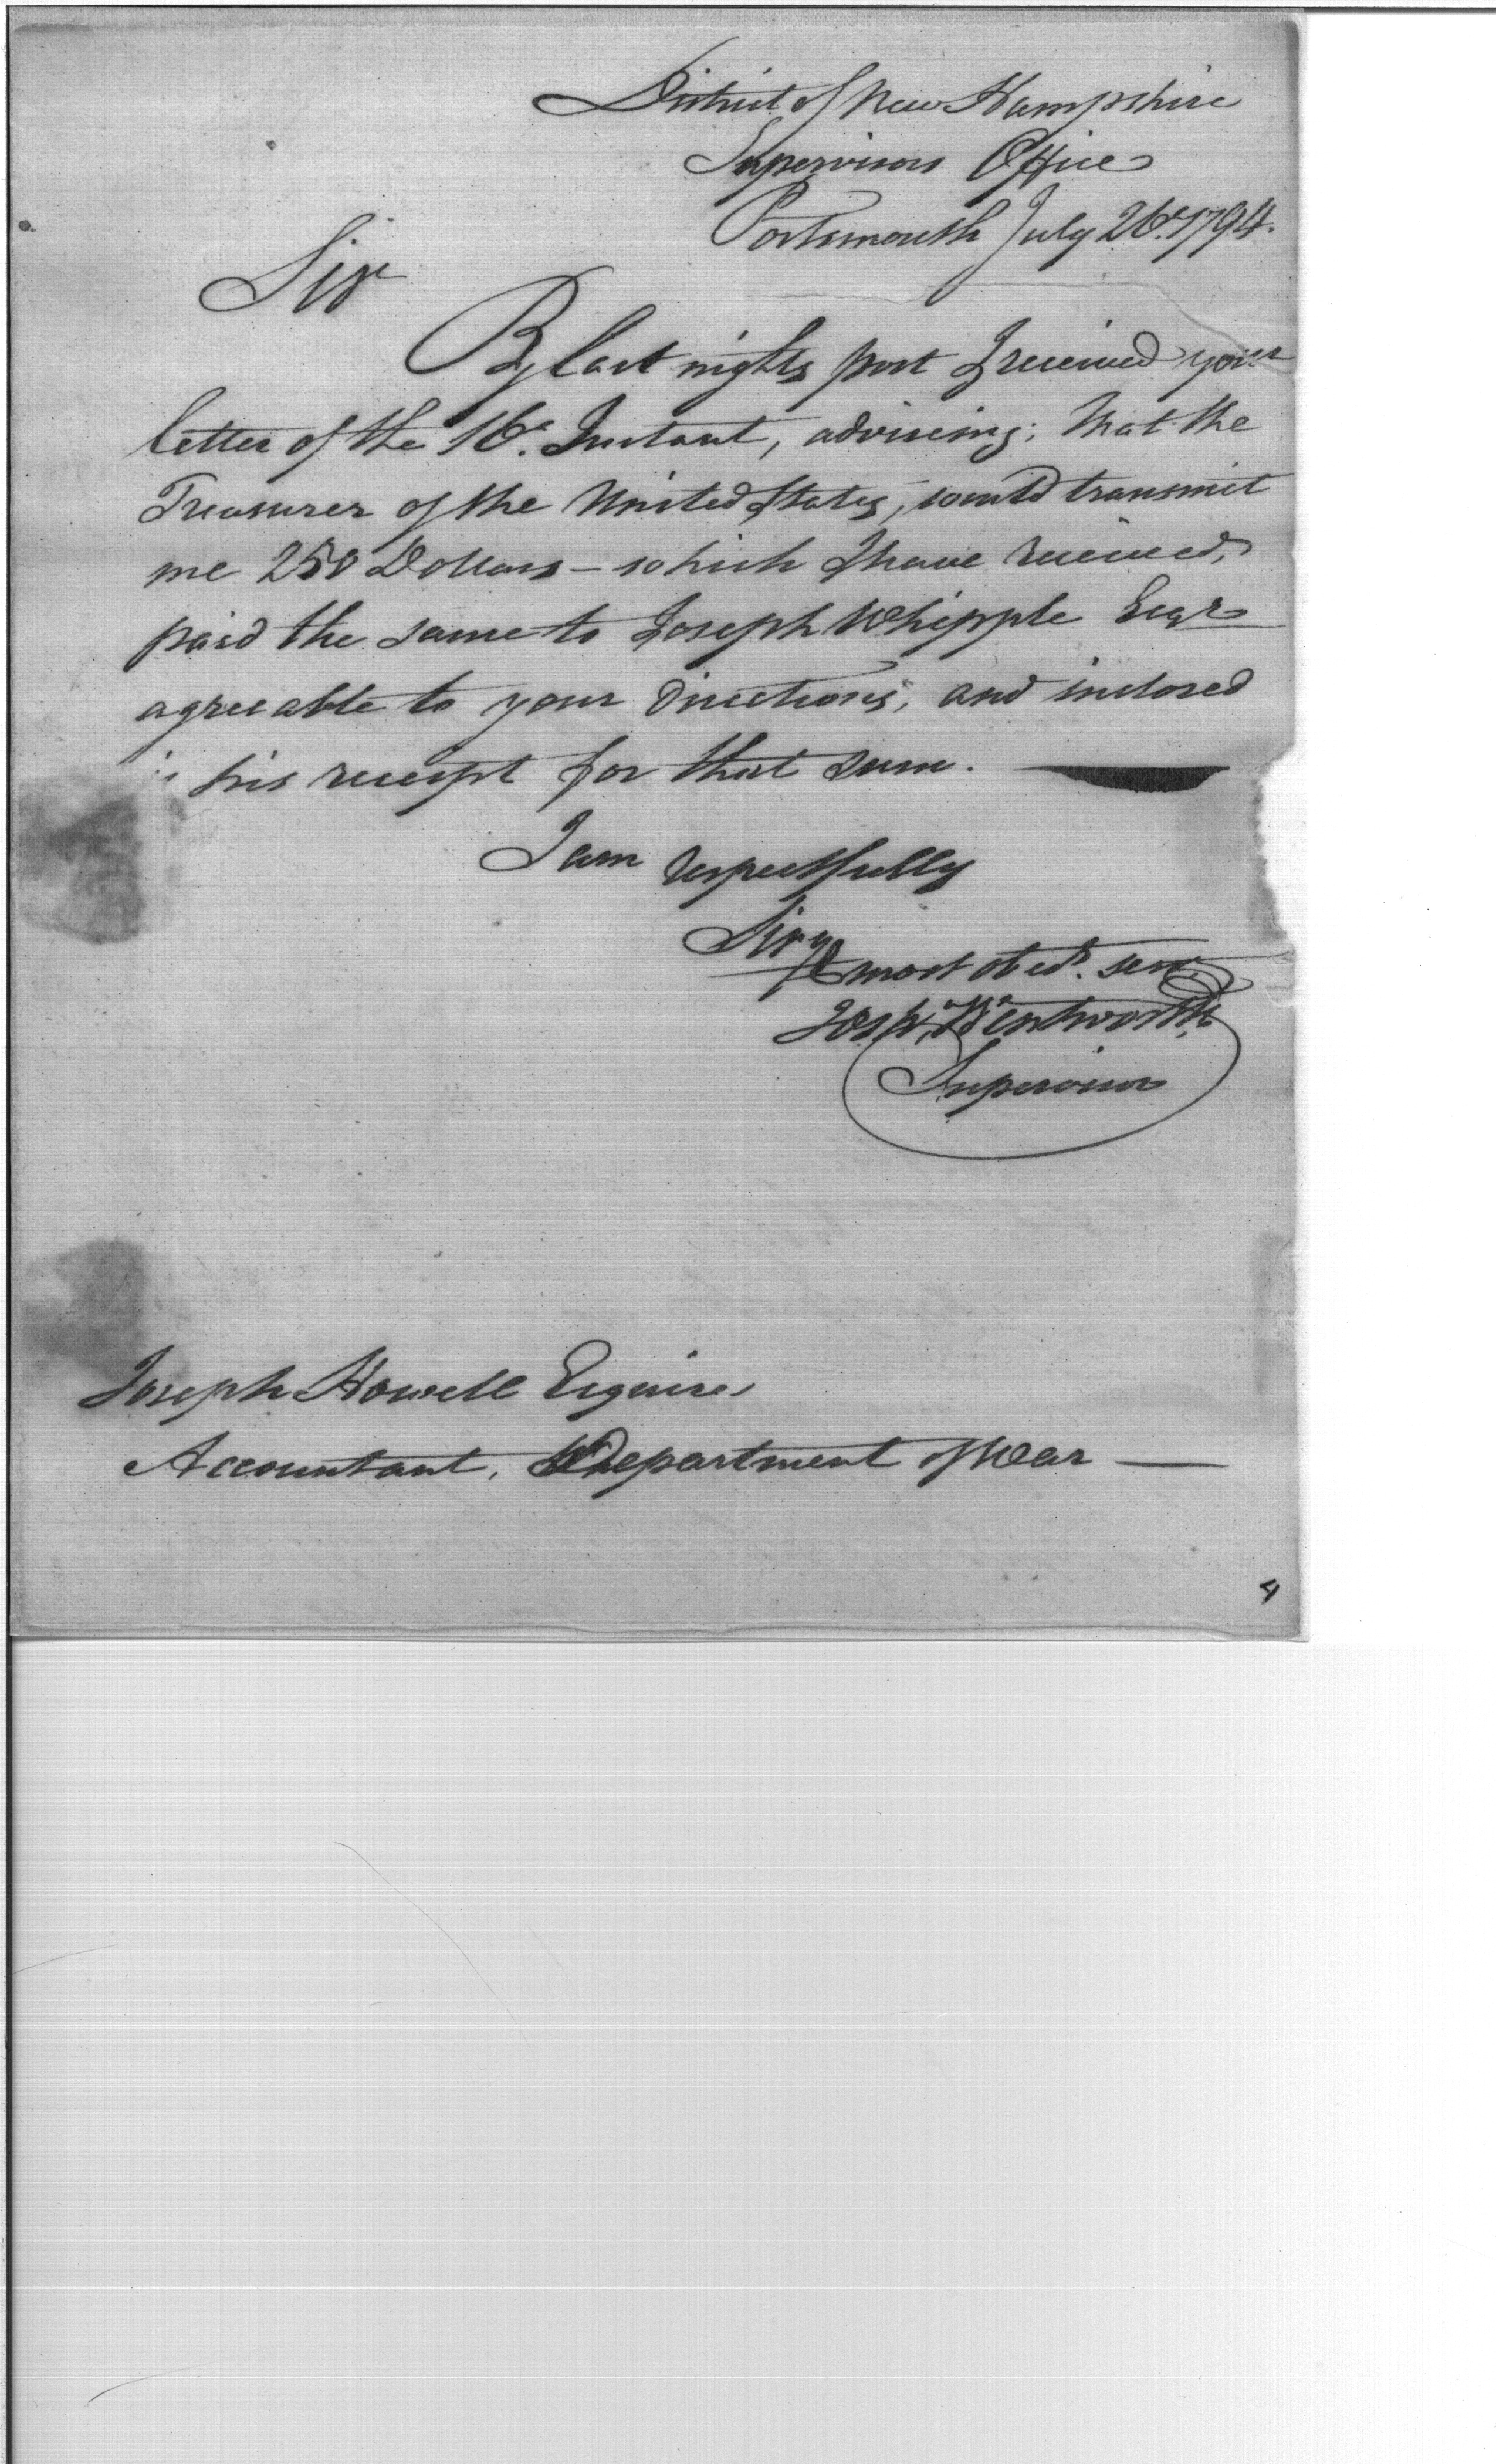 District of New Hampshire
Supervisors Office
Portsmouth July 26. 1794.
Sir
By last nights post I received your
letter of the 16. Instant, advising; that the
Treasurer of the United States, would transmit
me 250 Dollars – which I have received,
paid the same to Joseph Whipple Esqr
agreeable to your directions, and inclosed
is his receipt for that sum.
I am respectfully
Sir yr
most obedt. serv.
Josh. Wentworth
Supervisor
Joseph Howell Esquire
Accountant, Department of War —
4